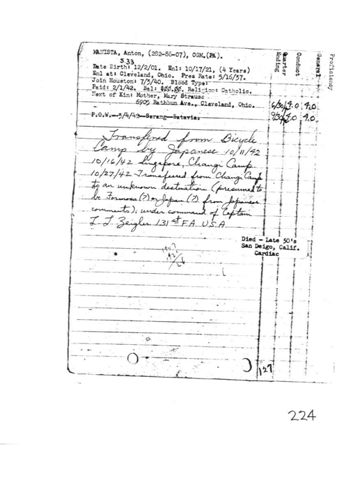 MANISTA, Anton, (282-86-07), CGM.(PA).
S 33
Date Birth: 12/2/01. Enl: 10/17/21, (4 Years)
Enl at: Cleveland, Ohio. Pres Rate: 5/16/37.
Join Houston: 7/3/40. Blood Type:
Paid: 2/1/42. Bal: Religion: Catholic.
Next of Kin: Mother, Mary Strauss
6905 Rathbun Ave., Cleveland, Ohio.
P.O.W.--3/4/42--Serang--Batavia.
Quarter Ending
Conduct
General
Proficiency
4.0 4.0
4.0 4.0
Transfered from Bicycle
Camp by Japanese 10/11/42
10/16/42 Singapore, Changi Camp
10/27/42 Transfered from Changi Camp
to an unknown destination (presumed to
be Formosa (?) or Japan (?) from Japanese
comments), under command of Captain
Zeigler 131st FA USA
Died - Late 50's
San Deigo, Calif.
Cardiac
127
224